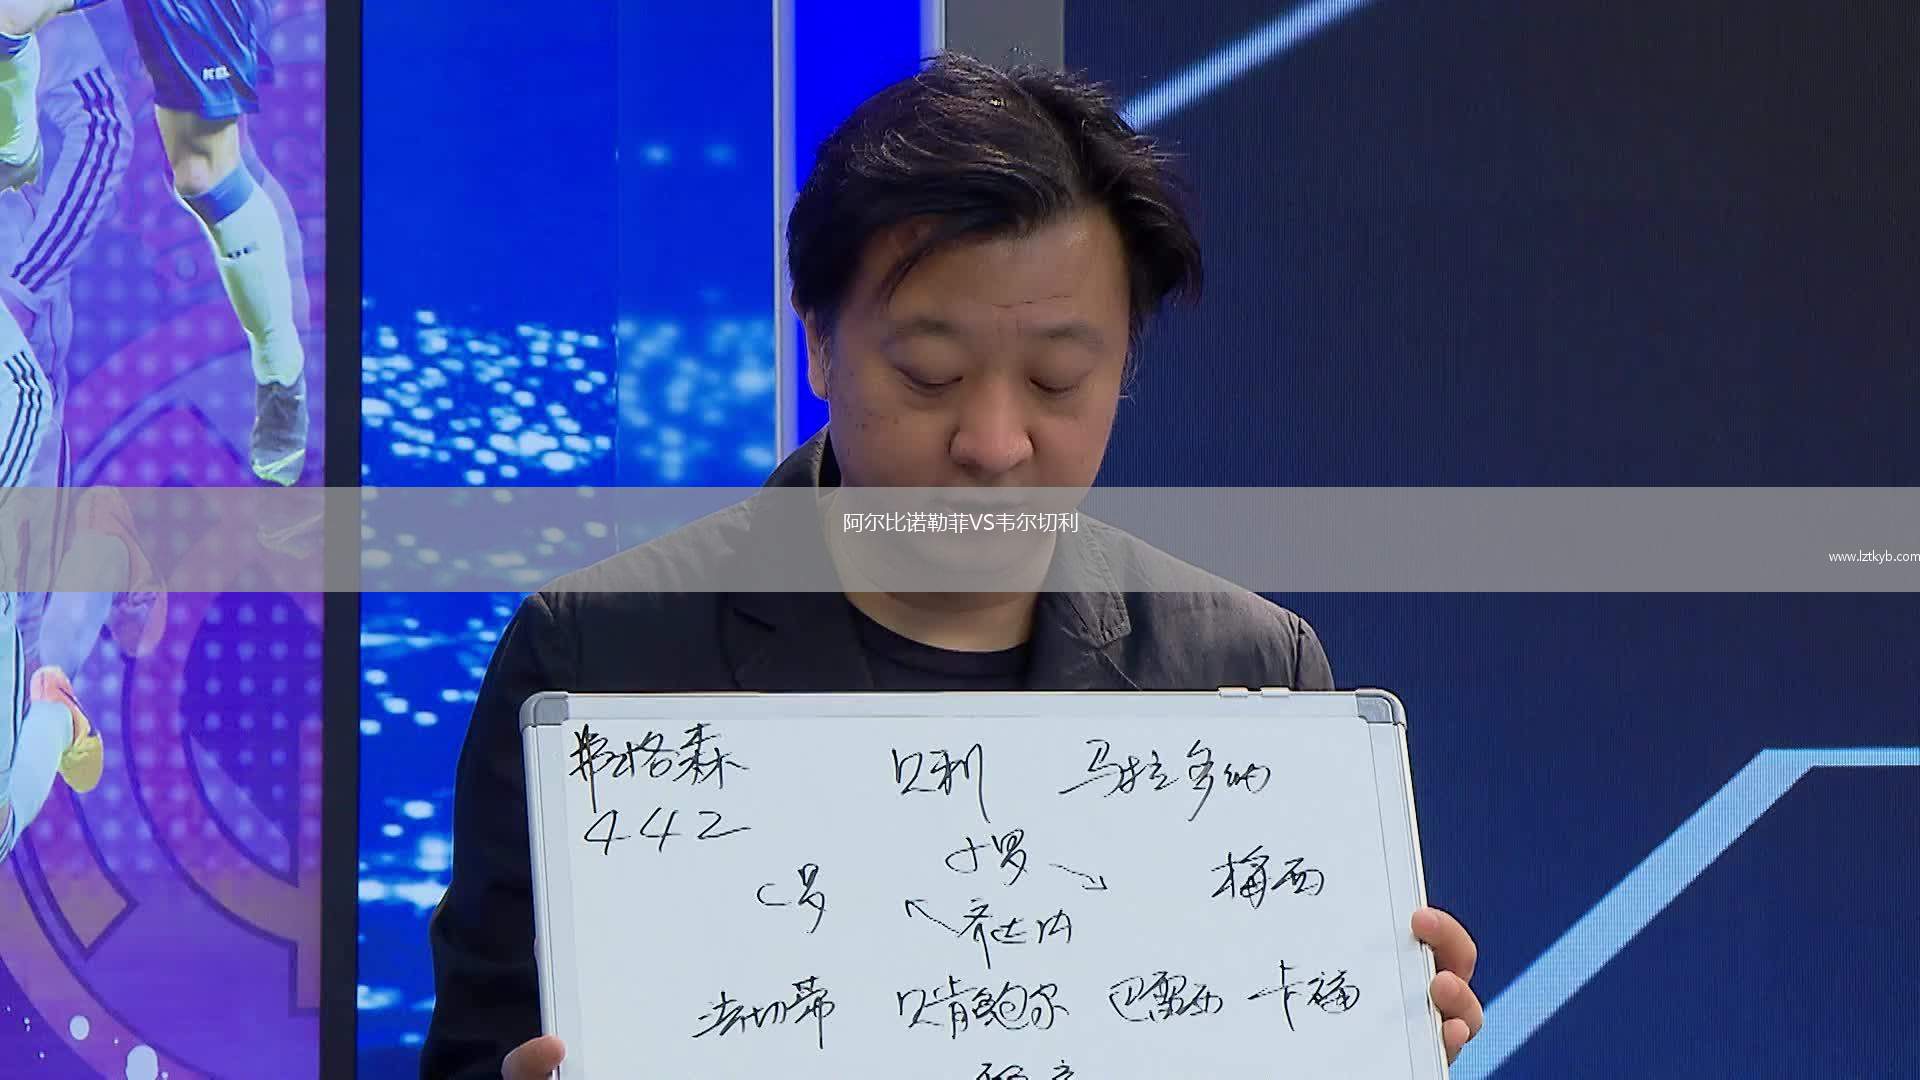 阿尔比诺勒菲VS韦尔切利
www.lztkyb.com
弗格森 贝利 马拉多纳
442
小罗
C罗 梅西
齐达内
法切蒂 贝肯鲍尔 巴雷西 卡福